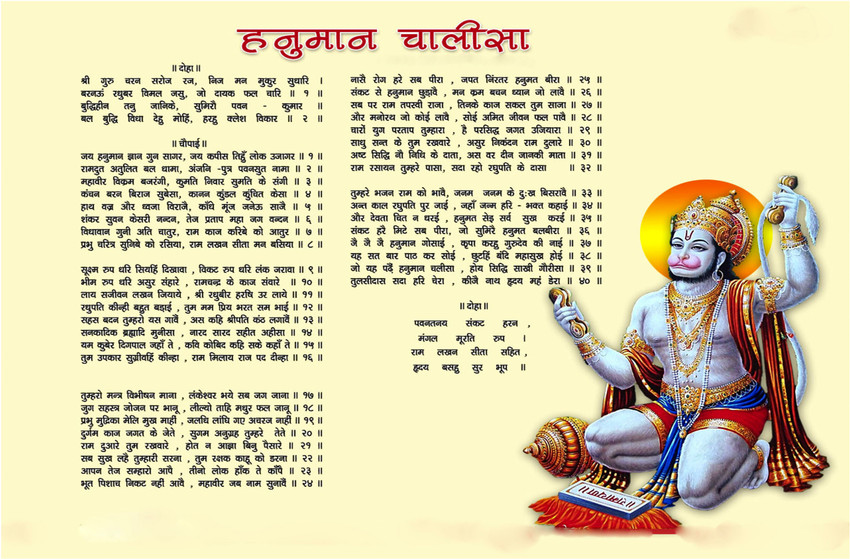 हनुमान चालीसा
॥ दोहा॥
श्री गुरु चरन सरोज रज, निज मन मुकुर सुधारि ।
बरनऊं रघुबर विमल जसु, जो दायक फल चारि ॥ १ ॥
बुद्धिहीन तनु जानिके, सुमिरौ पवन - कुमार ॥
बल बुद्धि विधा देहु मोहिं, हरहु क्लेश विकार ॥ २ ॥
॥ चौपाई॥
जय हनुमान ज्ञान गुन सागर, जय कपीस तिहुँ लोक उजागर ॥ १ ॥
रामदुत अतुलित बल धामा, अंजनि -पुत्र पवनसुत नामा ॥ २ ॥
महावीर विक्रम बजरंगी, कुमति निवार सुमति के संगी ॥ ३ ॥
कंचन बरन बिराज सुबेसा, कानन कुंडल कुंचित केसा ॥ ४ ॥
हाथ वज्र और ध्वजा विराजै, काँधे मूंज जनेऊ साजै ॥ ५ ॥
शंकर सुवन केसरी नन्दन, तेज प्रताप महा जग वन्दन ॥ ६ ॥
विधावान गुनी अति चातुर, राम काज करिबे को आतुर ॥ ७ ॥
प्रभु चरित्र सुनिबे को रसिया, राम लखन सीता मन बसिया ॥ ८ ॥
सूक्ष्म रुप धरि सियहिं दिखावा , विकट रुप धरि लंक जरावा ॥ ९ ॥
भीम रुप धरि असुर संहारे , रामचन्द्र के काज संवारे ॥ १० ॥
लाय सजीवन लखन जियाये , श्री रघुबीर हरषि उर लाये ॥ ११ ॥
रघुपति कीन्ही बहुत बड़ाई , तुम मम प्रिय भरत सम भाई ॥ १२ ॥
सहस बदन तुम्हरो यस गावैं , अस कहि श्रीपति कंठ लगावैं ॥ १३ ॥
सनकादिक ब्रह्मादि मुनीसा , नारद सारद सहीत अहीसा ॥ १४ ॥
यम कुबेर दिगपाल जहाँ ते , कवि कोबिद कहि सके कहाँ ते ॥ १५ ॥
तुम उपकार सुग्रीवहिं कीन्हा , राम मिलाय राज पद दीन्हा ॥ १६ ॥
तुम्हरो मन्त्र विभीषन माना , लंकेश्वर भये सब जग जाना ॥ १७ ॥
जुग सहस्त्र जोजन पर भानू , लील्यो ताहि मधुर फल जानू ॥ १८ ॥
प्रभु मुद्रिका मेलि मुख माहीं , जलधि लांधि गए अचरज नाहीं ॥ १९ ॥
दुर्गम काज जगत के जेते , सुगम अनुग्रह तुम्हरे तेते ॥ २० ॥
राम दुआरे तुम रखवारे , होत न आज्ञा बिनु पैसारे ॥ २१ ॥
सब सुख लहै तुम्हारी सरना , तुम रक्षक काहू को डरना ॥ २२ ॥
आपन तेज सम्हारो आपै , तीनो लोक हाँक ते काँपै ॥ २३ ॥
भूत पिशाच निकट नही आवै , महावीर जब नाम सुनावै ॥ २४ ॥
नासै रोग हरे सब पीरा , जपत निंरतर हनुमत बीरा ॥ २५ ॥
संकट से हनुमान छुड़ावै , मन क्रम बचन ध्यान जो लावै ॥ २६ ॥
सब पर राम तपस्वी राजा , तिनके काज सकल तुम साजा ॥ २७ ॥
और मनोरथ जो कोई लावै , सोई अमित जीवन फल पावै ॥ २८ ॥
चारों युग परताप तुम्हारा , है परसिद्ध जगत उजियारा ॥ २९ ॥
साधु सन्त के तुम रखवारे , असुर निकंदन राम दुलारे ॥ ३० ॥
अष्ट सिद्धि नौ निधि के दाता, अस वर दीन जानकी माता ॥ ३१ ॥
राम रसायन तुम्हरे पासा, सदा रहो रघुपति के दासा ॥ ३२ ॥
तुम्हरे भजन राम को भावै, जनम जनम के दुःख बिसरावै ॥ ३३ ॥
अन्त काल रघुपति पुर जाई , जहाँ जन्म हरि - भक्त कहाई ॥ ३४ ॥
और देवता चित न धरई , हनुमत सेइ सर्व सुख करई ॥ ३५ ॥
संकट हरै मिटे सब पीरा, जो सुमिरै हनुमत बलबीरा ॥ ३६ ॥
जै जै जै हनुमान गोसाई , कृपा करहु गुरुदेव की नाई ॥ ३७ ॥
यह सत बार पाठ कर सोई , छुटहिं बंदि महासुख होई ॥ ३८ ॥
जो यह पढ़ैं हनुमान चलीसा , होय सिद्धि साखी गौरीसा ॥ ३९ ॥
तुलसीदास सदा हरि चेरा , कीजै नाथ हृदय महं डेरा ॥ ४० ॥
॥ दोहा॥
पवनतनय संकट हरन ,
मंगल मूरति रुप ।
राम लखन सीता सहित ,
हृदय बसहु सुर भूप ॥